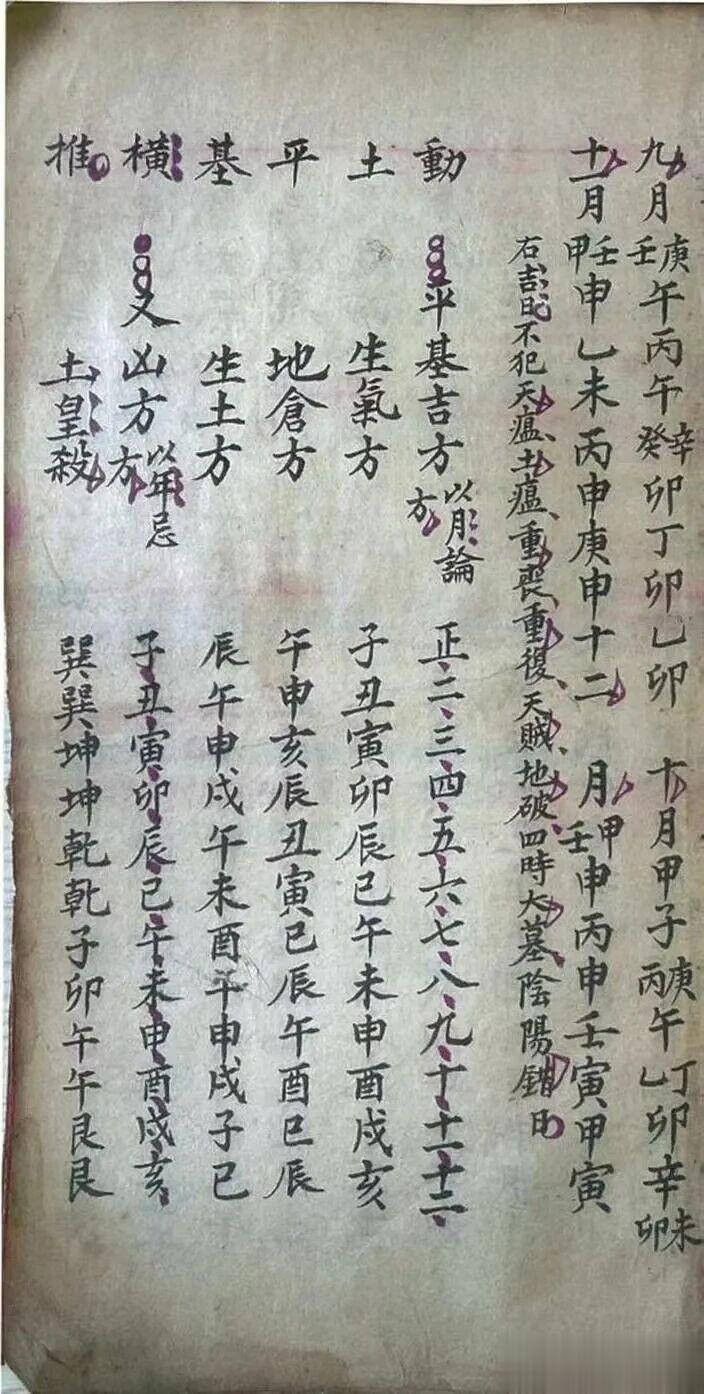 九月庚壬午丙午辛癸卯丁卯乙卯 十月甲子庚丙午丁乙卯辛未卯
十一月壬甲申乙未丙申庚申十二月甲壬申丙申壬寅甲寅
右吉日不犯天瘟、土瘟、重喪、重復、天賊、地破、四時大墓、陰陽錯日
動 平基吉方 以月論方 正、二、三、四、五、六、七、八、九、十、十一、十二、
土 生氣方 子丑寅卯辰巳午未申酉戌亥
平 地倉方 午申亥辰丑寅巳辰午酉巳辰
基 生土方 辰午申戌午未酉午申戌子巳
橫 又凶方 以年忌方 子、丑、寅、卯、辰、巳、午、未、申、酉、戌、亥、
推 土皇殺 巽巽坤坤乾乾子卯午午艮艮